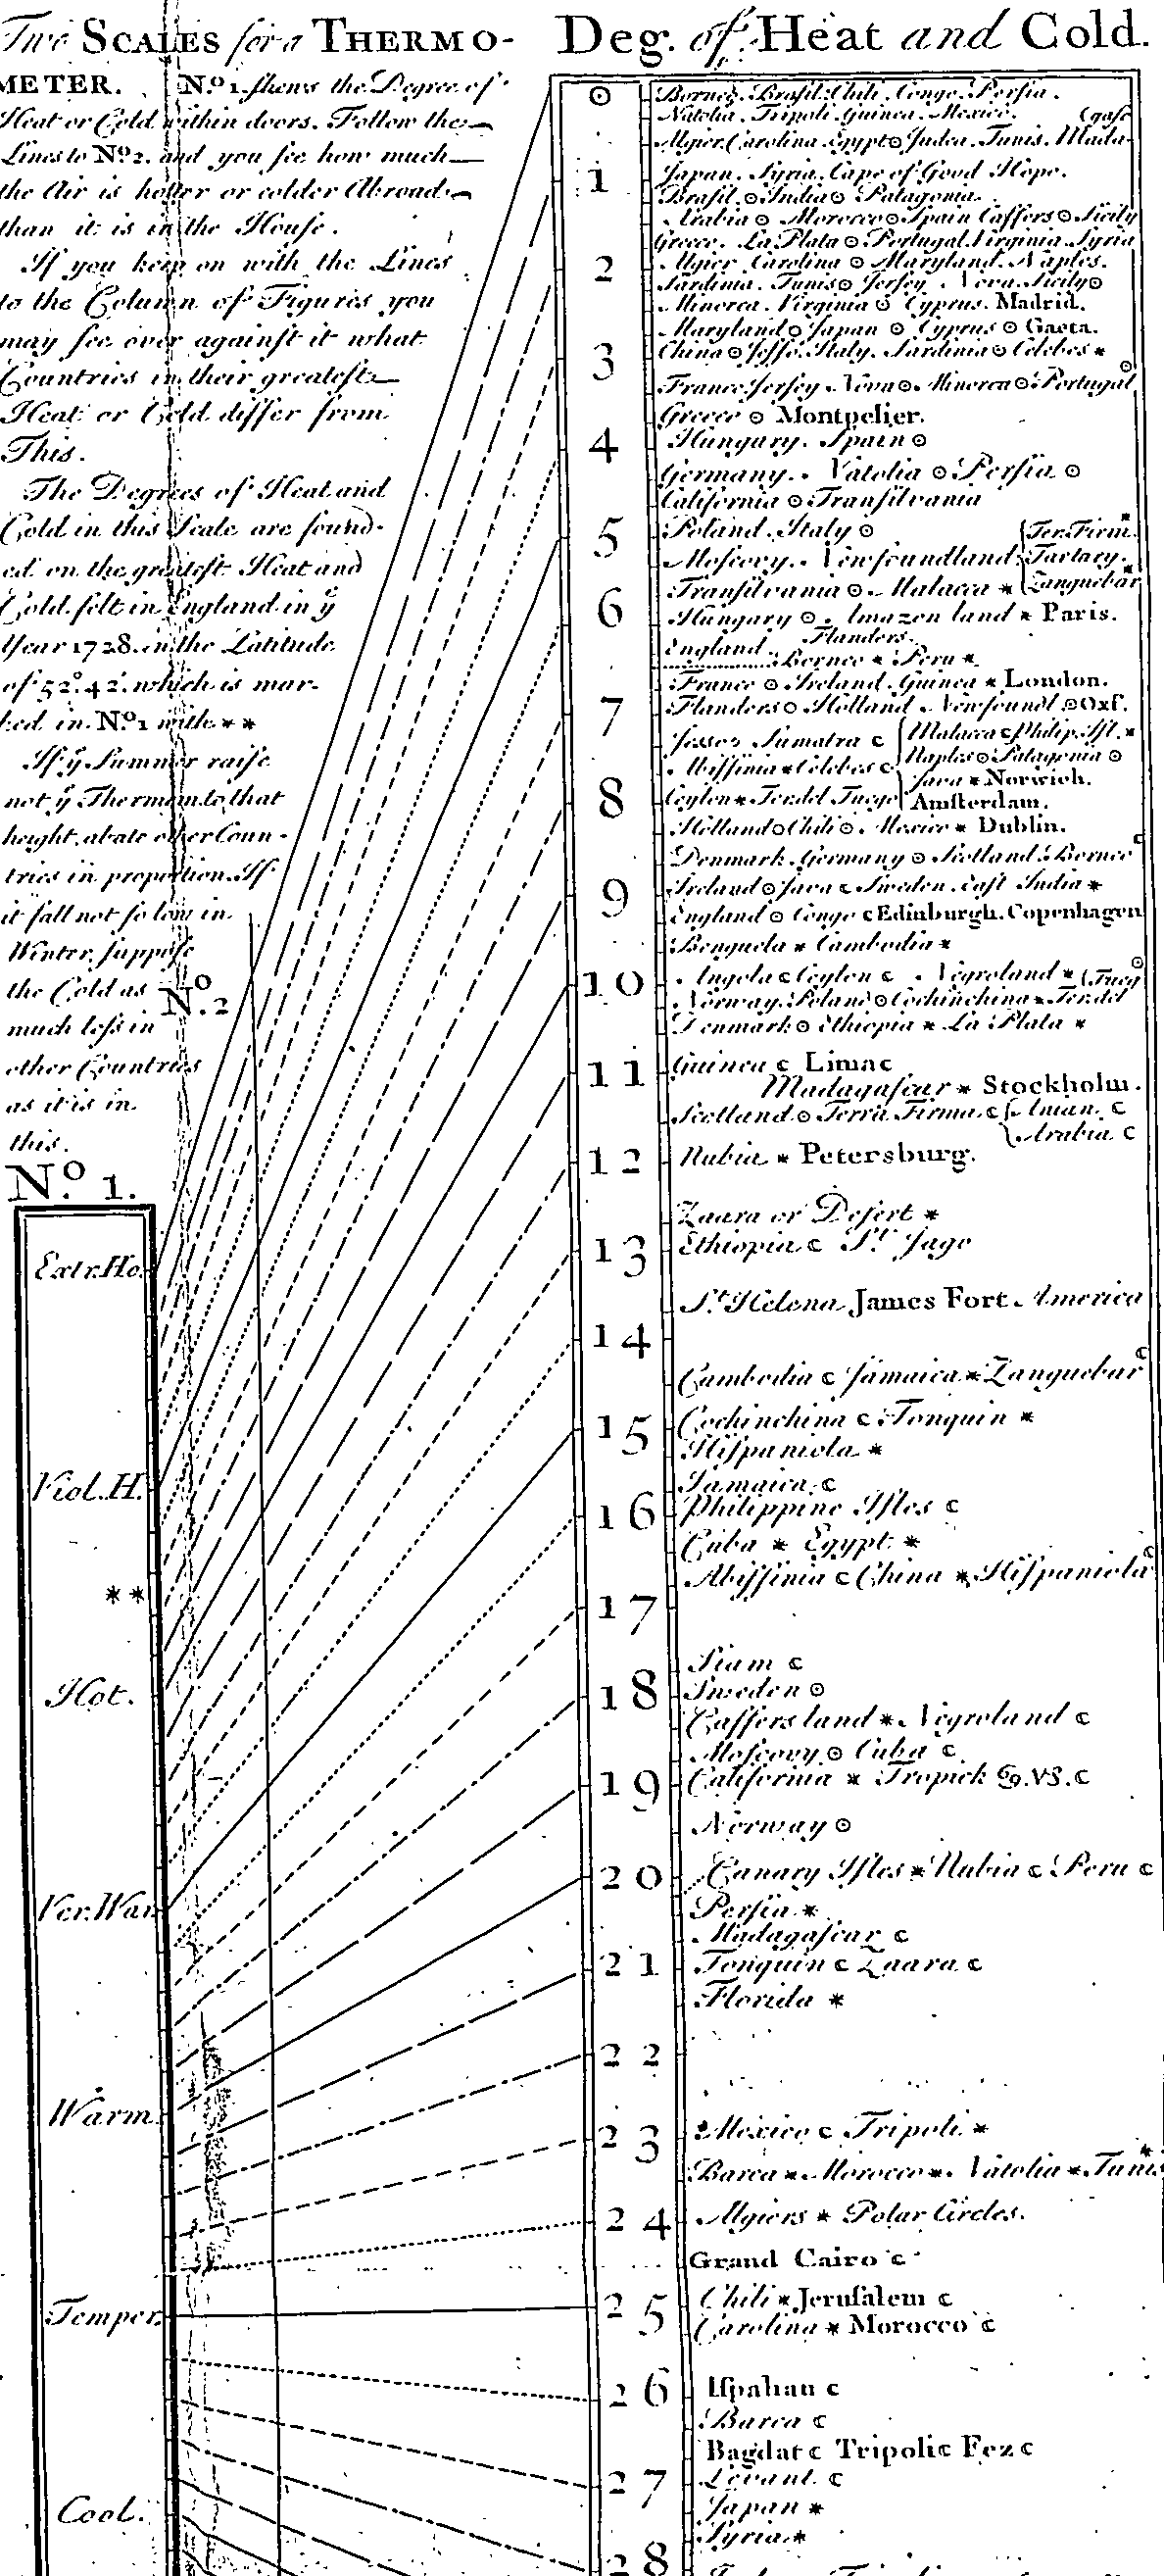 Two SCALES for a THERMO-
METER. No. 1. shews the Degree of
Heat or Cold within doors. Follow the
Lines to No. 2. and you see how much
the Air is hotter or colder Abroad
than it is in the House.
If you keep on with the Lines
to the Column of Figures you
may see over against it what
Countries in their greatest
Heat or Cold differ from
This.
The Degrees of Heat and
Cold in this Scale are found-
ed on the greatest Heat and
Cold felt in England in ye
Year 1728. in the Latitude
of 52°. 42'. which is mar-
ked in No. 1 with **
If ye Summer raise
not ye Thermom. to that
height, abate other Coun-
tries in proportion. If
it fall not so low in
Winter, suppose
the Cold as
much less in
other Countries
as it is in
this.
No. 2
No. 1.
Extr. Ho.
Viol. H.
**
Hot.
Ver. War
Warm
Temper.
Cool.
Deg. of Heat and Cold.
☉ Borneo. Brasil. Chili. Congo. Persia.
Natolia. Tripoli. Guinea. Mexico. (gasc
Algier. Carolina. Egypt ☉ Judea. Tunis. Mada-
1 Japan. Syria. Cape of Good Hope.
Brasil. ☉ India ☉ Patagonia.
Arabia ☉ Morocco ☉ Spain Caffers ☉ Sicily
Greece. La Plata ☉ Portugal. Virginia. Syria
2 Algier Carolina ☉ Maryland. Naples.
Sardinia. Tunis ☉ Jersey Nova. Sicily ☉
Minorca. Virginia ☉ Cyprus. Madrid.
Maryland ☉ Japan ☉ Cyprus ☉ Gaeta.
3 China ☉ Jesso. Italy. Sardinia ☉ Celebes *
France Jersey Nova ☉ Minorca ☉ Portugal ☉
Greece ☉ Montpelier.
4 Hungary. Spain ☉
Germany. Natolia ☉ Persia ☉
California ☉ Transilvania
5 Poland. Italy ☉ {Ter. Firm. *
Moscovy. Newfoundland {Tartary.
Transilvania ☉ Malacca * {Zanguebar *
6 Hungary ☉ Amazon land * Paris.
England. Flanders.
Borneo * Peru *
France ☉ Ireland. Guinea * London.
7 Flanders ☉ Holland Newfound ☉ Oxf.
Jesso ☉ Sumatra c {Malacca c Philip. Isl. *
Abissinia * Celebes c {Naples ☉ Patagonia ☉
Java * Norwich.
8 Ceylon * Ter del Fuego Amsterdam.
Holland ☉ Chili ☉ Mexico * Dublin.
Denmark. Germany ☉ Scotland. Borneo c
9 Ireland ☉ Java c Sweden. East India *
England ☉ Congo c Edinburgh. Copenhagen
Benguela * Cambodia *
10 Angola c Ceylon c Negroland * (Fueg ☉
Norway. Poland ☉ Cochinchina * Ter del
Denmark ☉ Ethiopia * La Plata *
11 Guinea c Lima c
Madagascar * Stockholm.
Scotland ☉ Terra Firma c {Aman. c
{Arabia c
12 Nubia * Petersburg.
Zaara or Desert *
13 Ethiopia c St. Jago
St. Helena James Fort. America
14
Cambodia c Jamaica * Zanguebar c
15 Cochinchina c Tonquin *
Hispaniola *
Jamaica c
16 Philippine Isles c
Cuba * Egypt *
Abissinia c China * Hispaniola c
17
Siam c
18 Sweden ☉
Caffers land * Negroland c
Moscovy ☉ Cuba c
19 California * Tropick ♋. ♑. c
Norway ☉
20 Canary Isles * Nubia c Peru c
Persia *
Madagascar c
21 Tonquin c Zaara c
Florida *
22
23 Mexico c Tripoli *
Barca * Morocco * Natolia * Tunis *
24 Algiers * Polar Circles.
Grand Cairo c
25 Chili * Jerusalem c
Carolina * Morocco c
26 Ispahan c
Barca c
Bagdat c Tripoli c Fez c
27 Levant. c
Japan *
Syria *
28